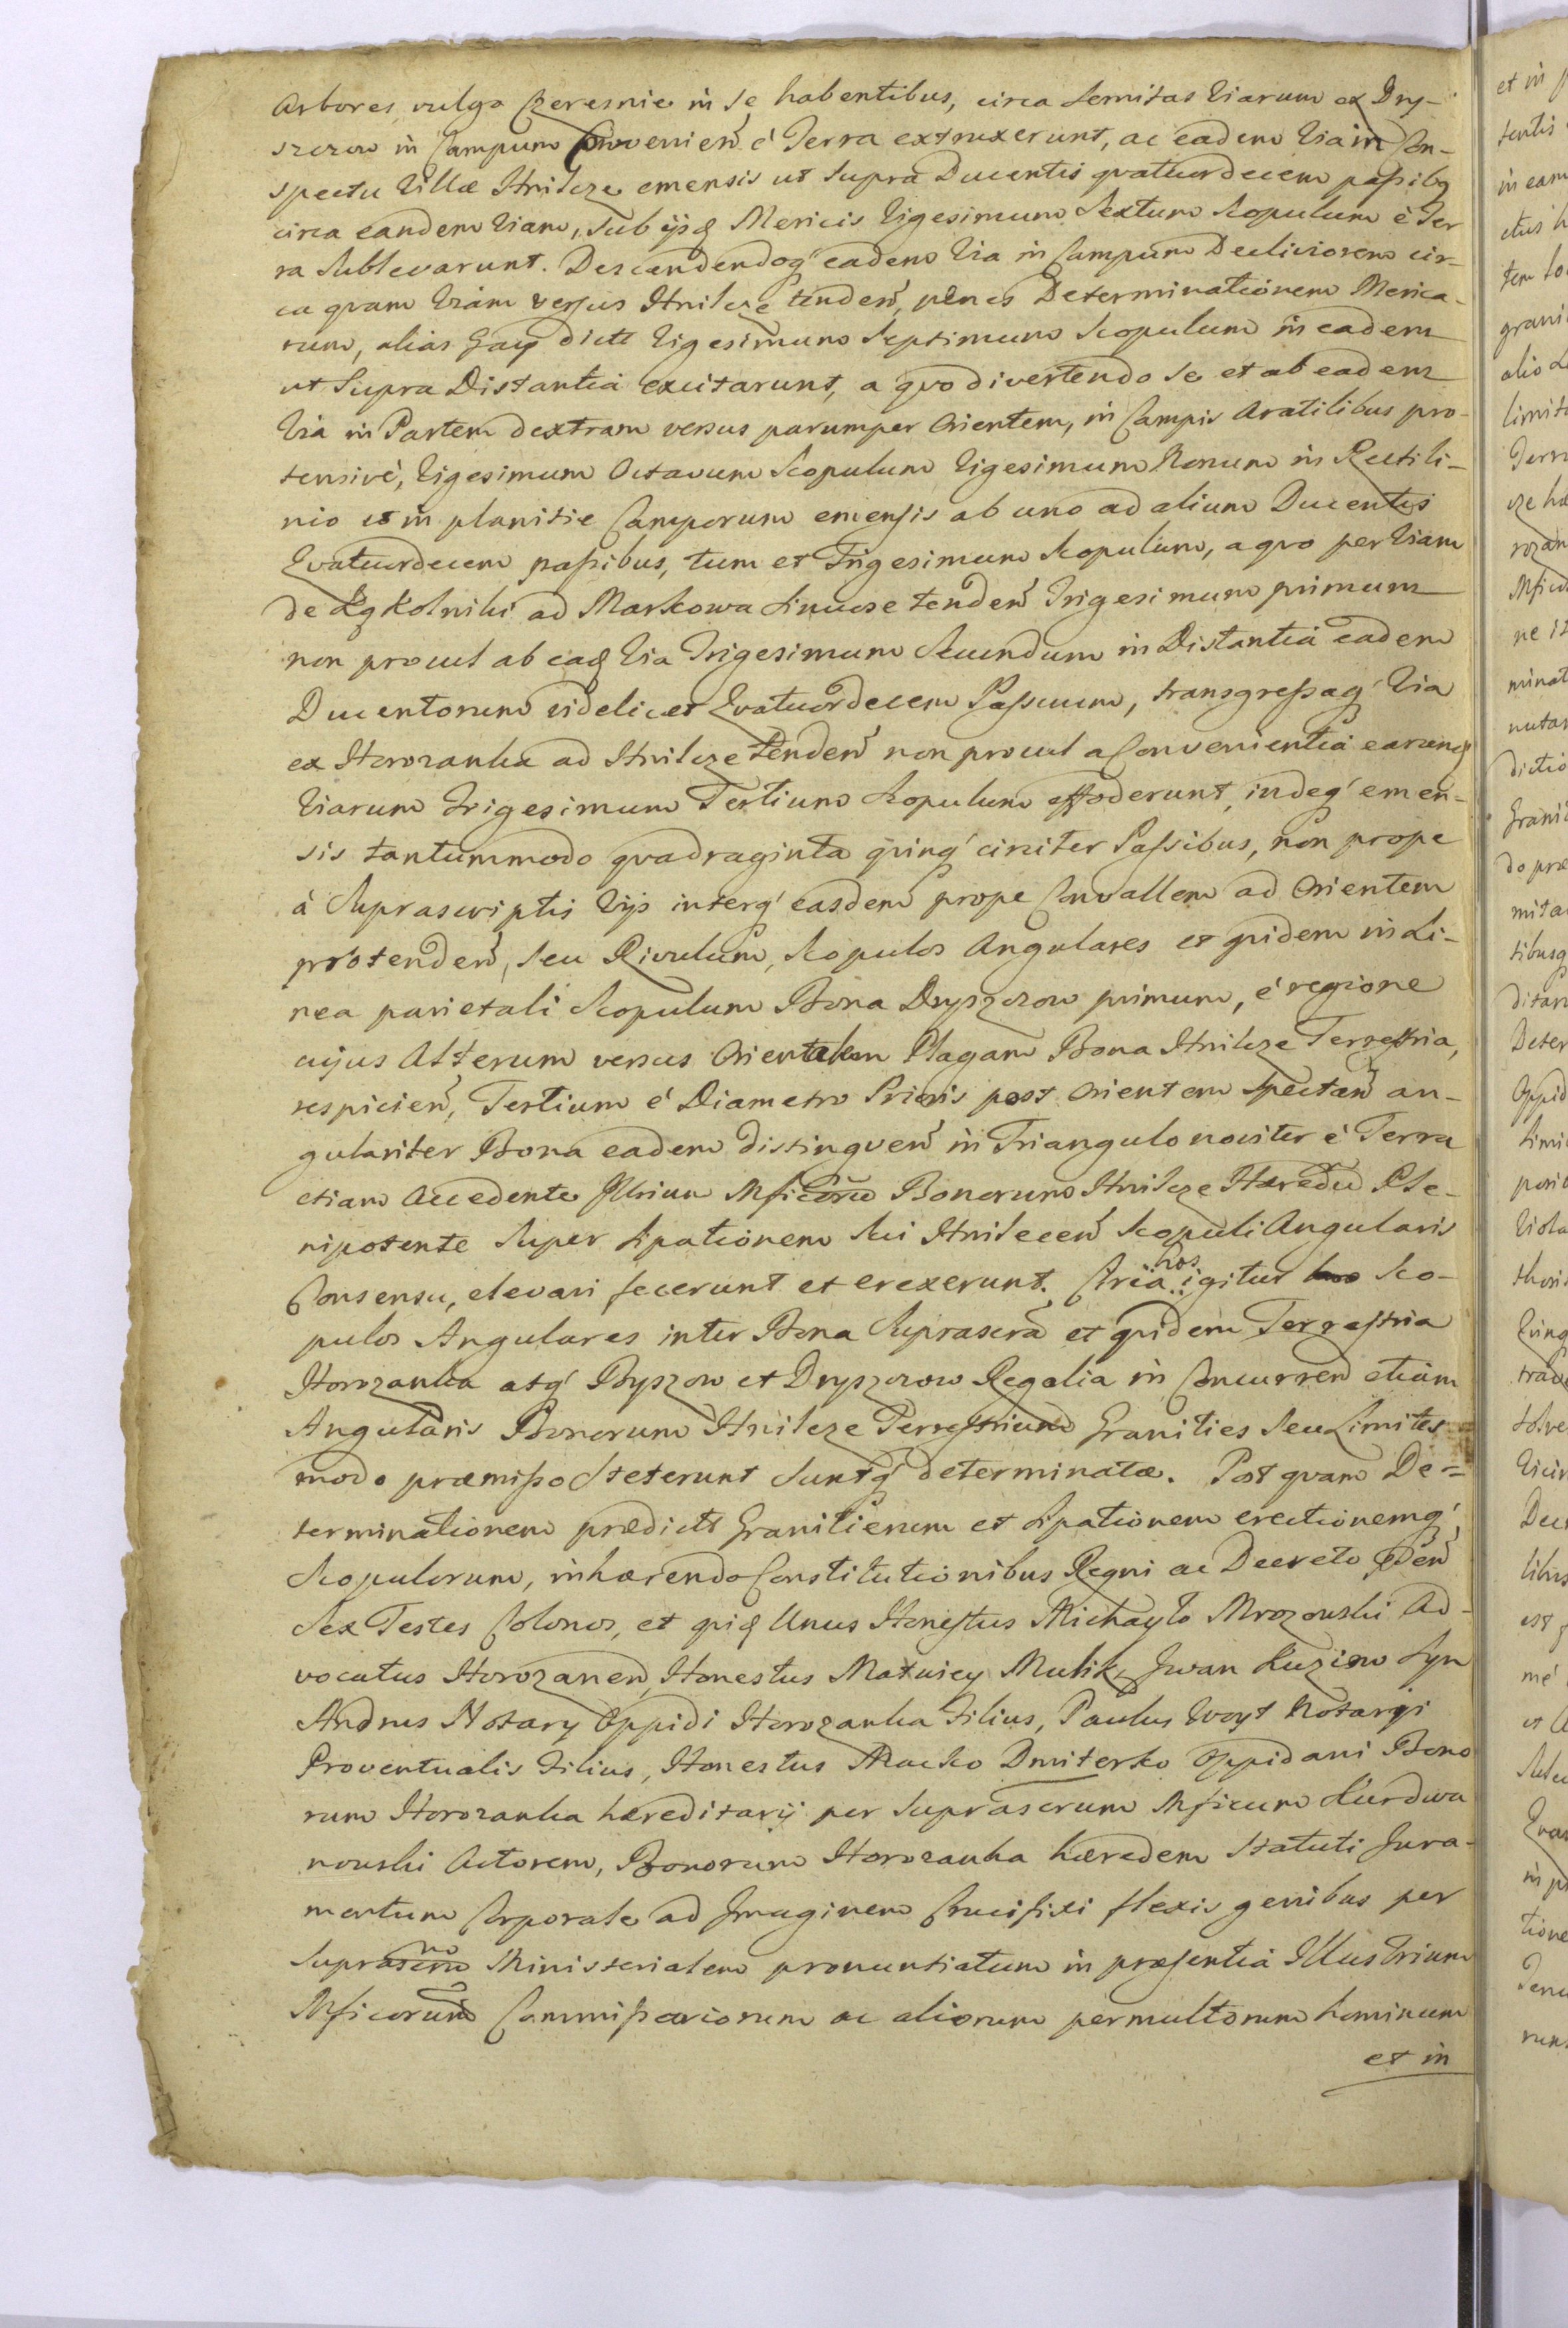 Arbores, vulgo Czeresnie in se habentibus, circa Semitas Viarum ex Dry-
szczow in Campum Convenien̄ é Terra extruxerunt, ac eadem Via in Con-
spectu Villæ Hnilcze emensis ut Supra Ducentis qvatuordecem passibq
circa eandem Viam, Sub ijsq Mericis Vigesimum Sextum Scopulum é Ter
ra Sublevarunt. Descendendoq' eadem Via in Campum Decliviorem cir-
ca qvam Viam versus Hnilcze tenden̄, penes Determinationem Merica-
rum, alias Gay dict Vigesimum Septimum Scopulum in eadem
ut Supra Distantia excitarunt, a qvo divertendo Se et ab eadem
Via in Partem dextram versus parumper Orientem, in Campis Aratilibus pro-
tensivé, Vigesimum Octavum Scopulum Vigesimum Nonum in Rectili-
nio et in planitie Camporum emensis ab uno ad alium Ducentis
Qvatuordecem passibus, tum et Trigesimum Scopulum, a qvo per Viam
de Zgkolniki ad Markowa Sinuose tenden̄ Trigesimum primum
non procul ab eaq Via Trigesimum Secundum in Distantia eadem
Ducentorum videlicet Qvatuordecem Passuum, transgressaq' Via
ex Horozanka ad Hnilcze tenden̄ non procul a Convenientia earunq
Viarum Trigesimum Tertium Scopulum effoderunt, indeq' emen-
sis tantummodo qvadraginta qvinq' circiter Passibus, non prope
á Suprascriptis Vijs interq' easdem prope Convallem ad Orientem
protenden̄, Seu Rivulum, Scopulos Angulares et qvidem in Li-
nea parietali Scopulum Bona Dryszczow primum, é regione
cujus Alterum versus Orientalem Plagam Bona Hnilcze Terrestria,
respicien̄, Tertium é Diametro Prioris post Orientem Spectan̄ an-
gulariter Bona eadem distingven̄ in Triangulo noviter é Terra
etiam Accedente Illrium Mficorū Bonorum Hnilcze Hæredū Ple-
nipotente Super Sipationem Sui Hnilecen̄ Scopuli Angularis
Consensu, elevari fecerunt et erexerunt. Citra igitur hos Sco-
pulos Angulares inter Bona Suprascrā et qvidem Terrestria
Horozanka atq' Byszow et Dryszczow Regalia in Concurren̄ etiam
Angularis Bonorum Hnilcze Terrestrium Granities Seu Limites
modo præmisso Steterunt Suntq' determinatæ. Post qvam De=
terminationem prædict Granitierum et Sipationem erectionemq'
Scopulorum, inhærendo Constitutionibus Regni ac Decreto
Sex Testes Colonos, et qviq Unus Honestus Michayło Mrozowski Ad-
vocatus Horozanen̄, Honestus Matwiey Mulik, Jwan Kuziow Syn
Andrus Notary Oppidi Horozanka Filius, Paulus Woyt Notarÿi
Proventualis Filius, Honestus Macko Dmiterko Oppidani Bono
rum Horozanka hæreditarij per Suprascrum Mficum Kurdwa
nowski Actorem, Bonorum Horozanka hæredem Statuti Jura-
mentum Corporale ad Jmaginem Crucifixi flexis genibus per
Suprascrm̄ Ministerialem pronuntiatum in præsentia Illustrium
Mficorum Commissariorum ac aliorum permultorum hominum
et in